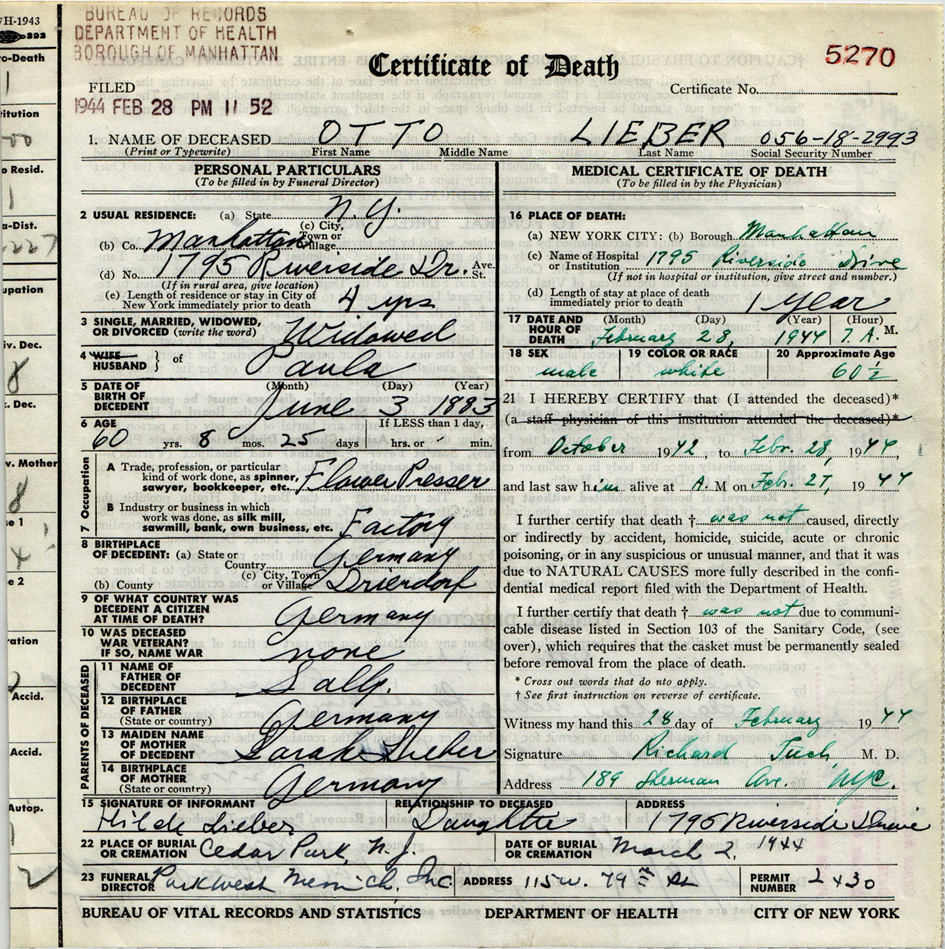 VH-1943
BUREAU OF RECORDS
DEPARTMENT OF HEALTH
BOROUGH OF MANHATTAN
Certificate of Death
5270
FILED
Certificate No.
1944 FEB 28 PM 11 52
1. NAME OF DECEASED OTTO LIEBER 056-18-2993
(Print or Typewrite) First Name Middle Name Last Name Social Security Number
PERSONAL PARTICULARS
(To be filled in by Funeral Director)
2 USUAL RESIDENCE: (a) State N.Y.
(b) Co. Manhattan (c) City, Town or Village
(d) No. 1795 Riverside Dr. Ave. St.
(If in rural area, give location)
(e) Length of residence or stay in City of
New York immediately prior to death 4 yrs
3 SINGLE, MARRIED, WIDOWED,
OR DIVORCED (write the word) Widowed
4 WIFE
HUSBAND } of Paula
5 DATE OF BIRTH OF DECEDENT (Month) (Day) (Year)
June 3 1883
6 AGE If LESS than 1 day,
60 yrs. 8 mos. 25 days hrs. or min.
7 Occupation
A Trade, profession, or particular
kind of work done, as spinner,
sawyer, bookkeeper, etc. Flower Presser
B Industry or business in which
work was done, as silk mill,
sawmill, bank, own business, etc. Factory
8 BIRTHPLACE
OF DECEDENT: (a) State or Country Germany
(b) County (c) City, Town or Village Driendorf
9 OF WHAT COUNTRY WAS
DECEDENT A CITIZEN
AT TIME OF DEATH? Germany
10 WAS DECEASED
WAR VETERAN?
IF SO, NAME WAR none
PARENTS OF DECEASED
11 NAME OF
FATHER OF
DECEDENT Sally
12 BIRTHPLACE
OF FATHER
(State or country) Germany
13 MAIDEN NAME
OF MOTHER
OF DECEDENT Sarah Lieber
14 BIRTHPLACE
OF MOTHER
(State or country) Germany
MEDICAL CERTIFICATE OF DEATH
(To be filled in by the Physician)
16 PLACE OF DEATH:
(a) NEW YORK CITY: (b) Borough Manhattan
(c) Name of Hospital
or Institution 1795 Riverside Drive
(If not in hospital or institution, give street and number.)
(d) Length of stay at place of death
immediately prior to death 1 Year
17 DATE AND HOUR OF DEATH (Month) (Day) (Year) (Hour)
February 28, 1944 7. A. M.
18 SEX 19 COLOR OR RACE 20 Approximate Age
male white 60 ½
21 I HEREBY CERTIFY that (I attended the deceased)*
(a staff physician of this institution attended the deceased)*
from October 1942 to Febr. 28, 1944
and last saw him alive at A. M on Febr. 27, 1944
I further certify that death † was not caused, directly
or indirectly by accident, homicide, suicide, acute or chronic
poisoning, or in any suspicious or unusual manner, and that it was
due to NATURAL CAUSES more fully described in the confi-
dential medical report filed with the Department of Health.
I further certify that death † was not due to communi-
cable disease listed in Section 103 of the Sanitary Code, (see
over), which requires that the casket must be permanently sealed
before removal from the place of death.
* Cross out words that do nto apply.
† See first instruction on reverse of certificate.
Witness my hand this 28 day of February 1944
Signature Richard Tuch, M. D.
Address 189 Sherman Ave. NYC.
15 SIGNATURE OF INFORMANT RELATIONSHIP TO DECEASED ADDRESS
Hilde Lieber Daughter 1795 Riverside Drive
22 PLACE OF BURIAL
OR CREMATION Cedar Park, N.J. DATE OF BURIAL
OR CREMATION March 2, 1944
23 FUNERAL
DIRECTOR ParkWest Inc. ADDRESS 115 W. 79th St PERMIT
NUMBER 2430
BUREAU OF VITAL RECORDS AND STATISTICS DEPARTMENT OF HEALTH CITY OF NEW YORK